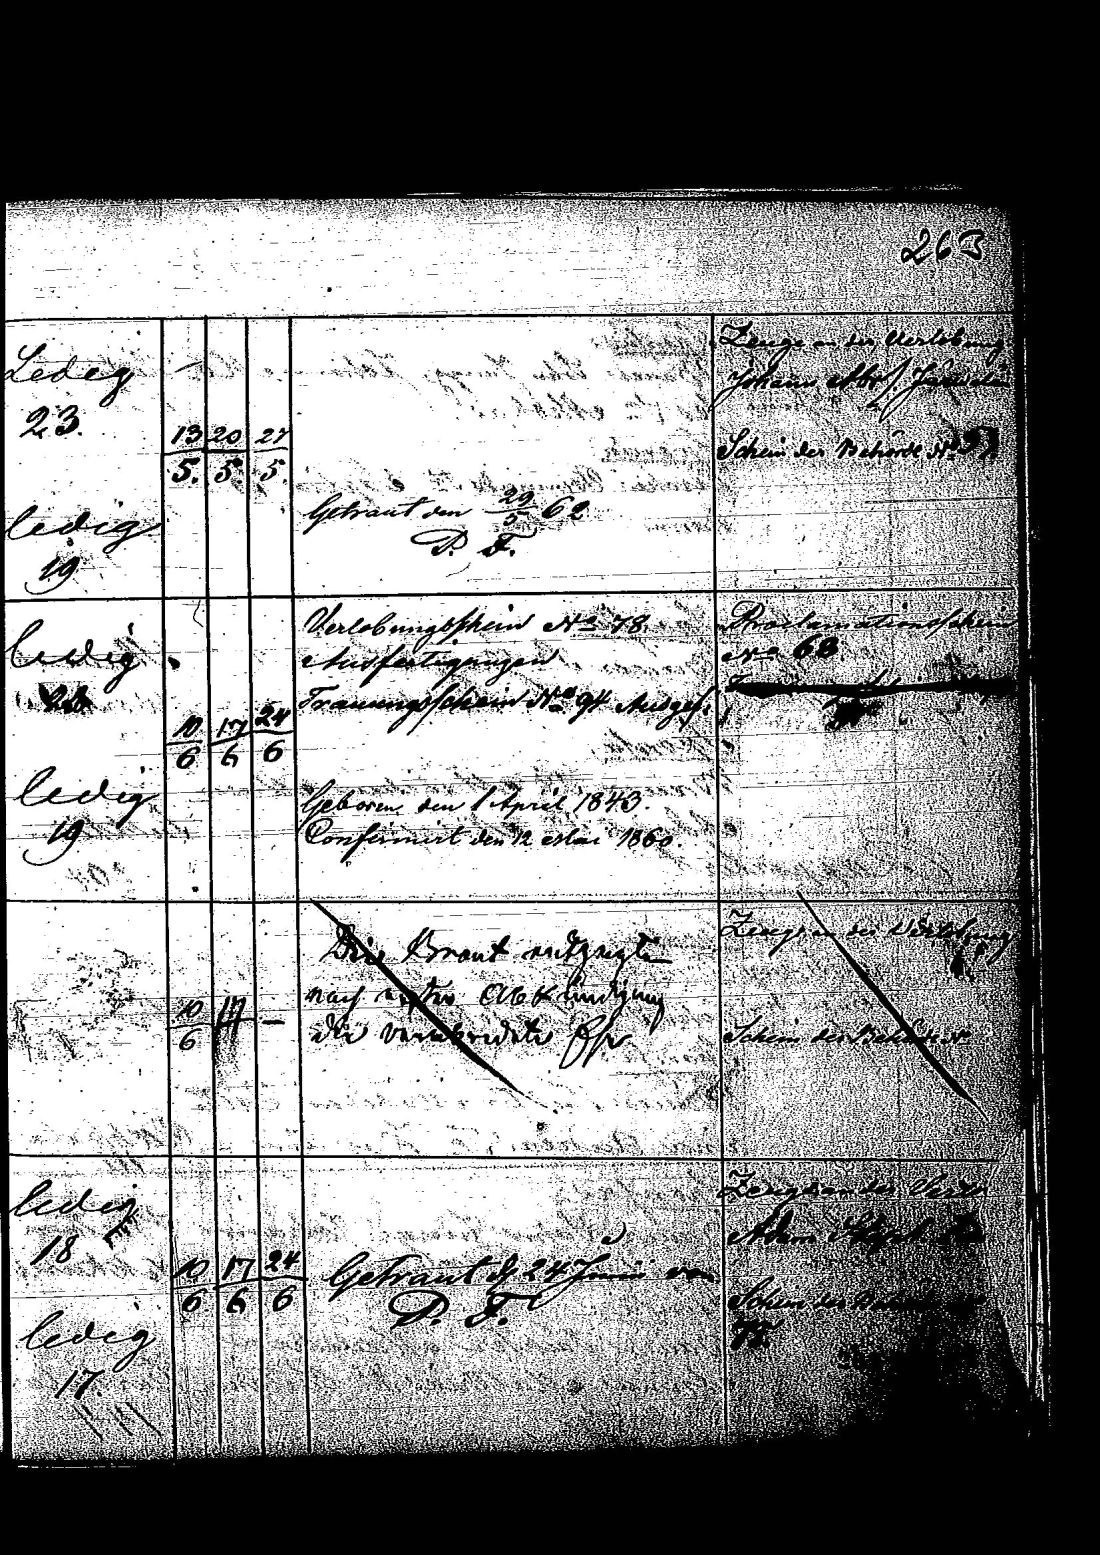 263
Ledig
23.
13 20 27
5. 5. 5.
ledig
19
Getraut den 29/5 62
P. F.
Zeuge an der Verlobung
Johann
Schein der Behörde No
ledig
10 17 24
6 6 6
ledig
19
Verlobungsschein No 78.
Ausfertigungen
Trauungsschein No 94 Ausgef.
Geboren den 1 April 1843.
Confirmirt den 12 Mai 1860.
Proclamationsschein
No 68
10
6
Die Braut
nach Abkündigung
die verabredete Ehe
Zeuge an der Verlobung
Schein der Behörde No
ledig
18
10 17 24
6 6 6
ledig
17.
Getraut d 24 Juni von
P. F.
Zeuge an der
Adam
Schein der